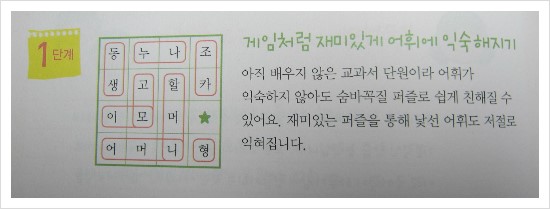 1단계
동 누 나 조
생 고 할 카
이 모 머 ★
어 머 니 형
게임처럼 재미있게 어휘에 익숙해지기
아직 배우지 않은 교과서 단원이라 어휘가
익숙하지 않아도 숨바꼭질 퍼즐로 쉽게 친해질 수
있어요. 재미있는 퍼즐을 통해 낯선 어휘도 저절로
익혀집니다.